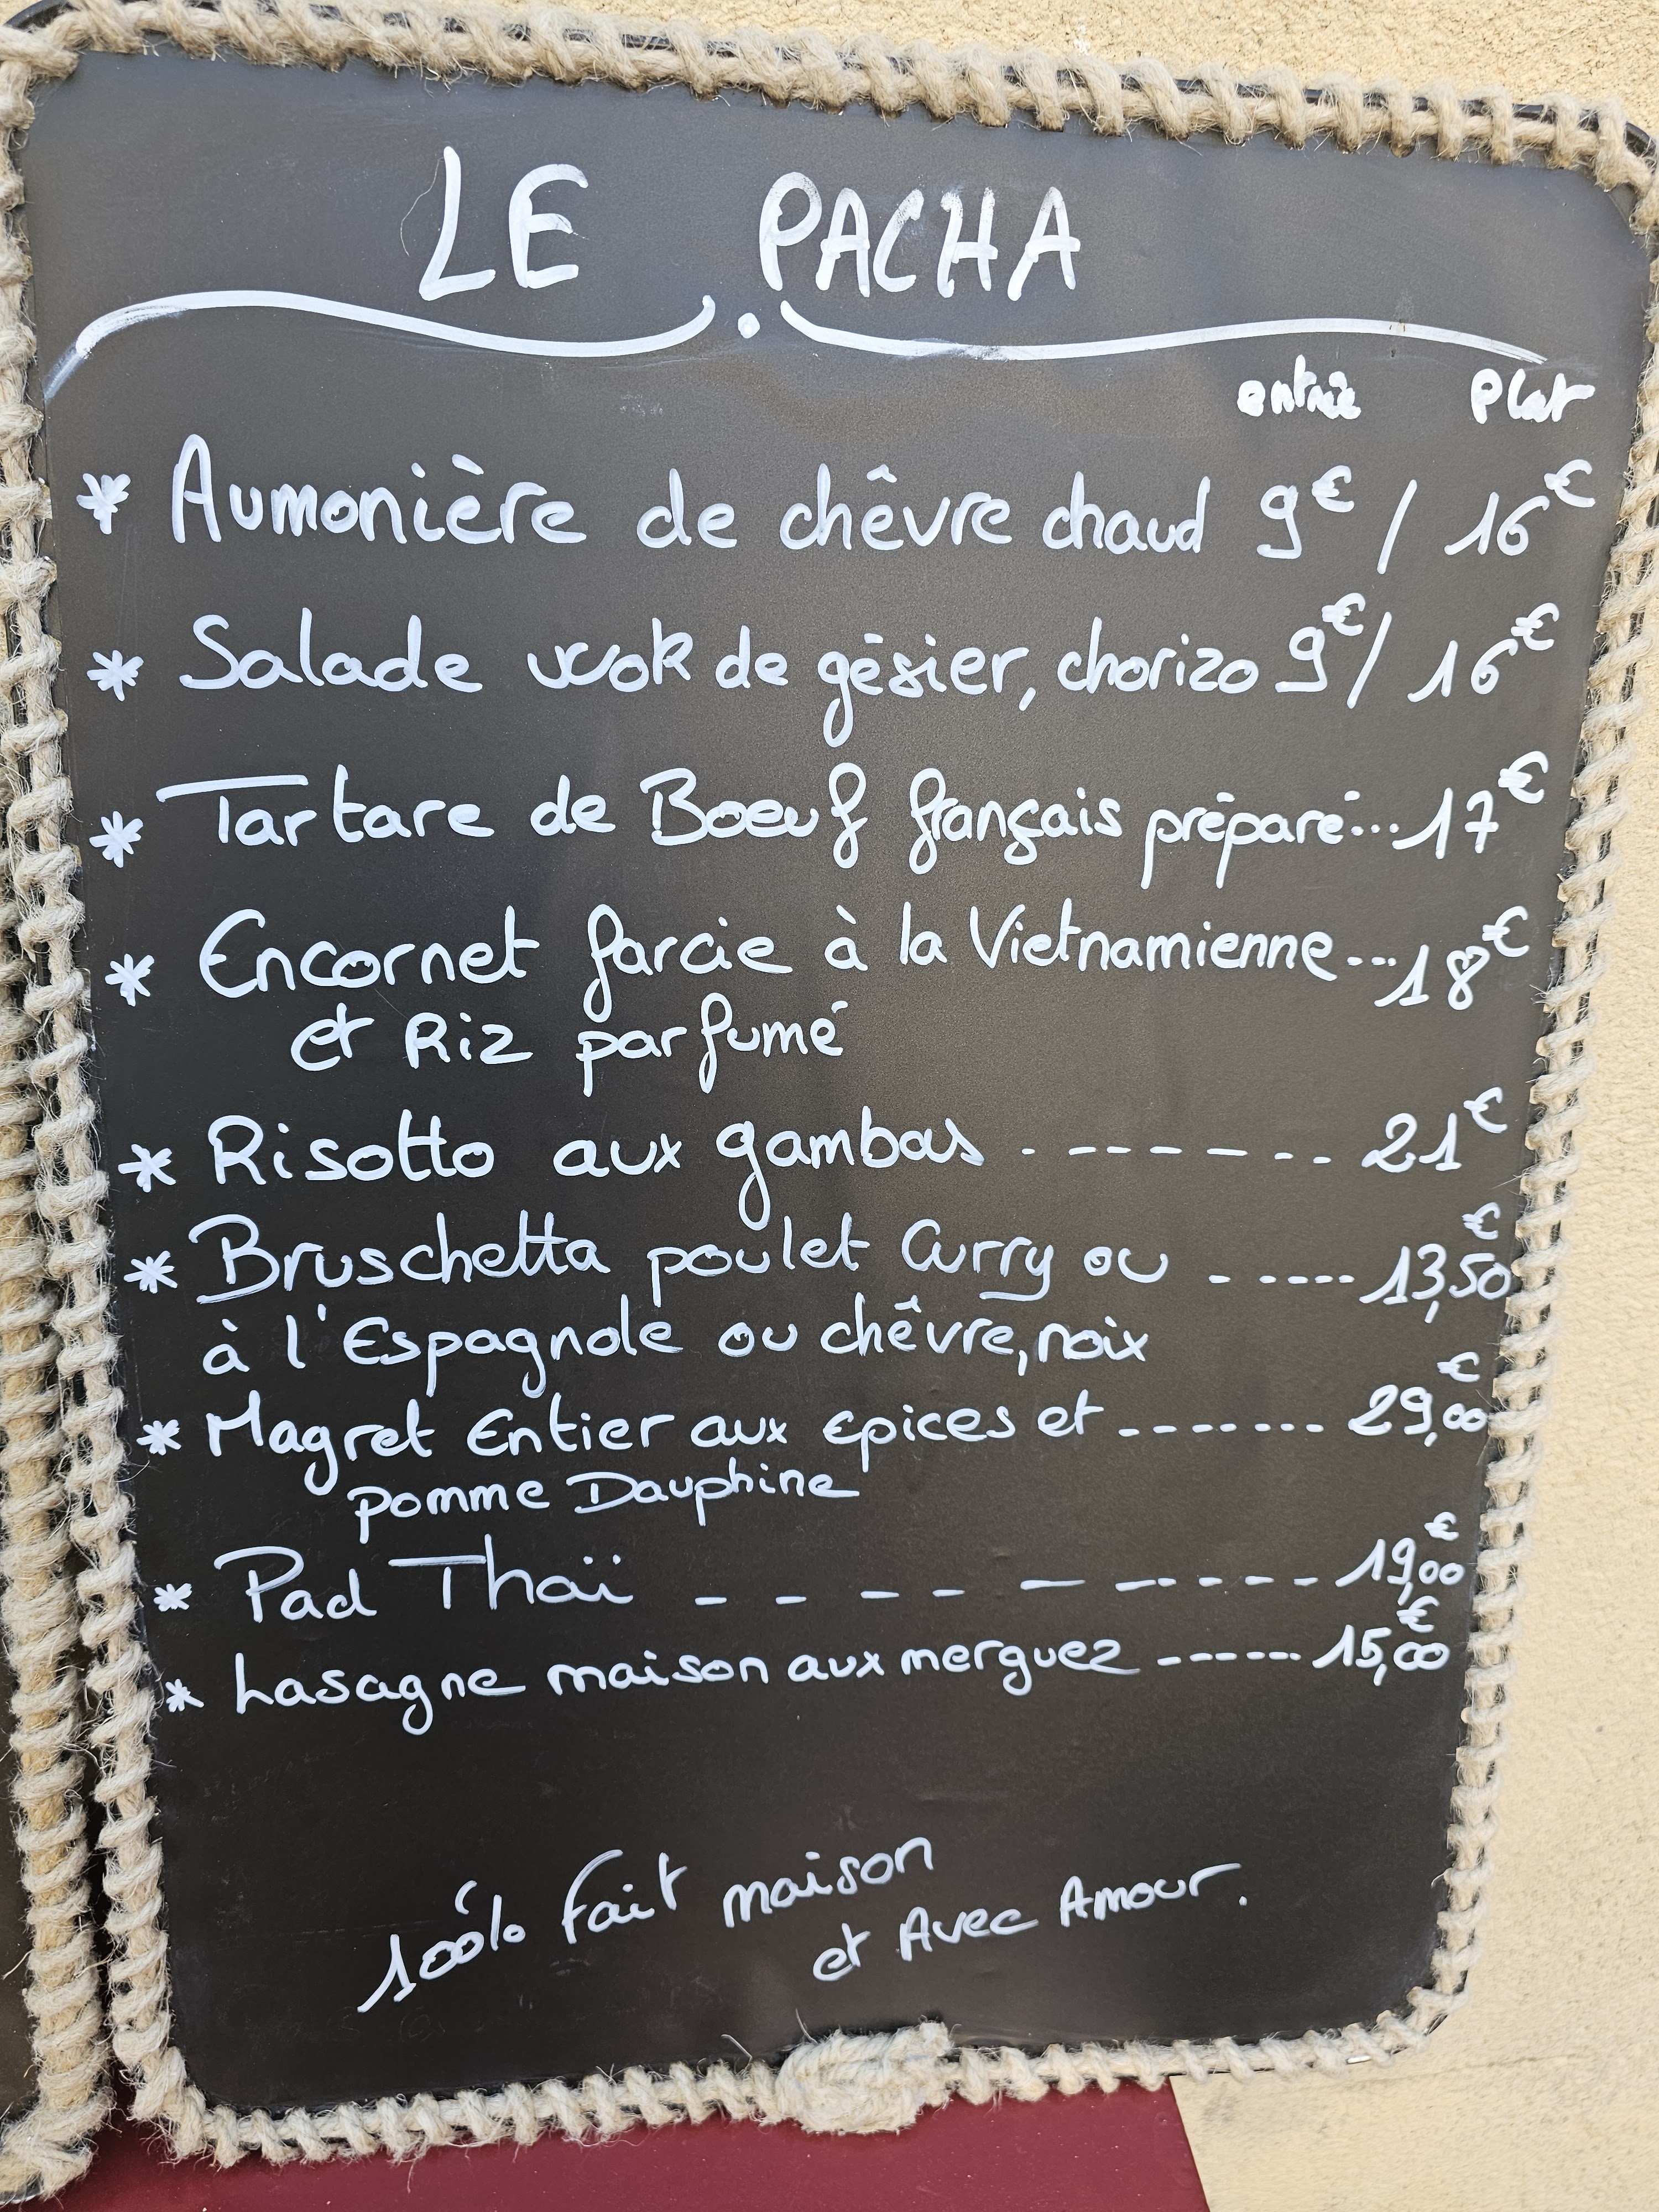 LE PACHA
entrée Plat
* Aumonière de chêvre chaud 9€ / 16€
* Salade wok de gésier, chorizo 9€ / 16€
* Tartare de Boeuf français préparé... 17€
* Encornet farcie à la Vietnamienne... 18€
et Riz parfumé
* Risotto aux gambas . ------- .. 21€
* Bruschetta poulet Curry ou - ----- 13,50€
à l'Espagnole ou chêvre, noix
* Magret Entier aux epices et ------- 29,00€
pomme Dauphine
* Pad Thaï - - - - - - - - - - - 19,00€
* Lasagne maison aux merguez ------ 15,00€
100% Fait maison
et Avec Amour.